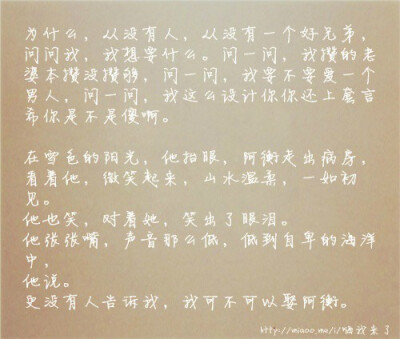 为什么，从没有人，从没有一个好兄弟，
问问我，我想要什么。问一问，我攒的老
婆本攒没攒够，问一问，我要不要爱一个
男人，问一问，我这么设计你你还上套言
希你是不是傻啊。
在雪色的阳光，他抬眼，阿衡走出病房，
看着他，微笑起来，山水温柔，一如初
见。
他也笑，对着她，笑出了眼泪。
他张张嘴，声音那么低，低到自卑的海洋
中，
他说。
更没有人告诉我，我可不可以娶阿衡。